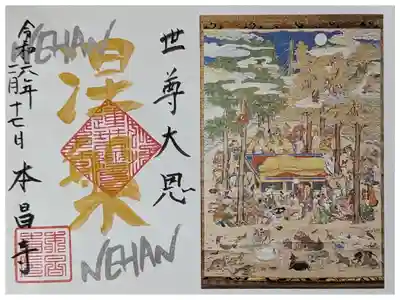 世尊大恩
涅槃
NEHAN
NEHAN
令和六年
二月十七日 本昌寺